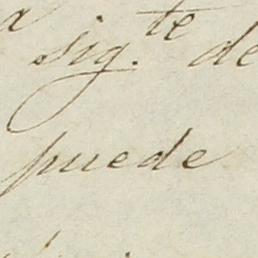 sig.te de
puede